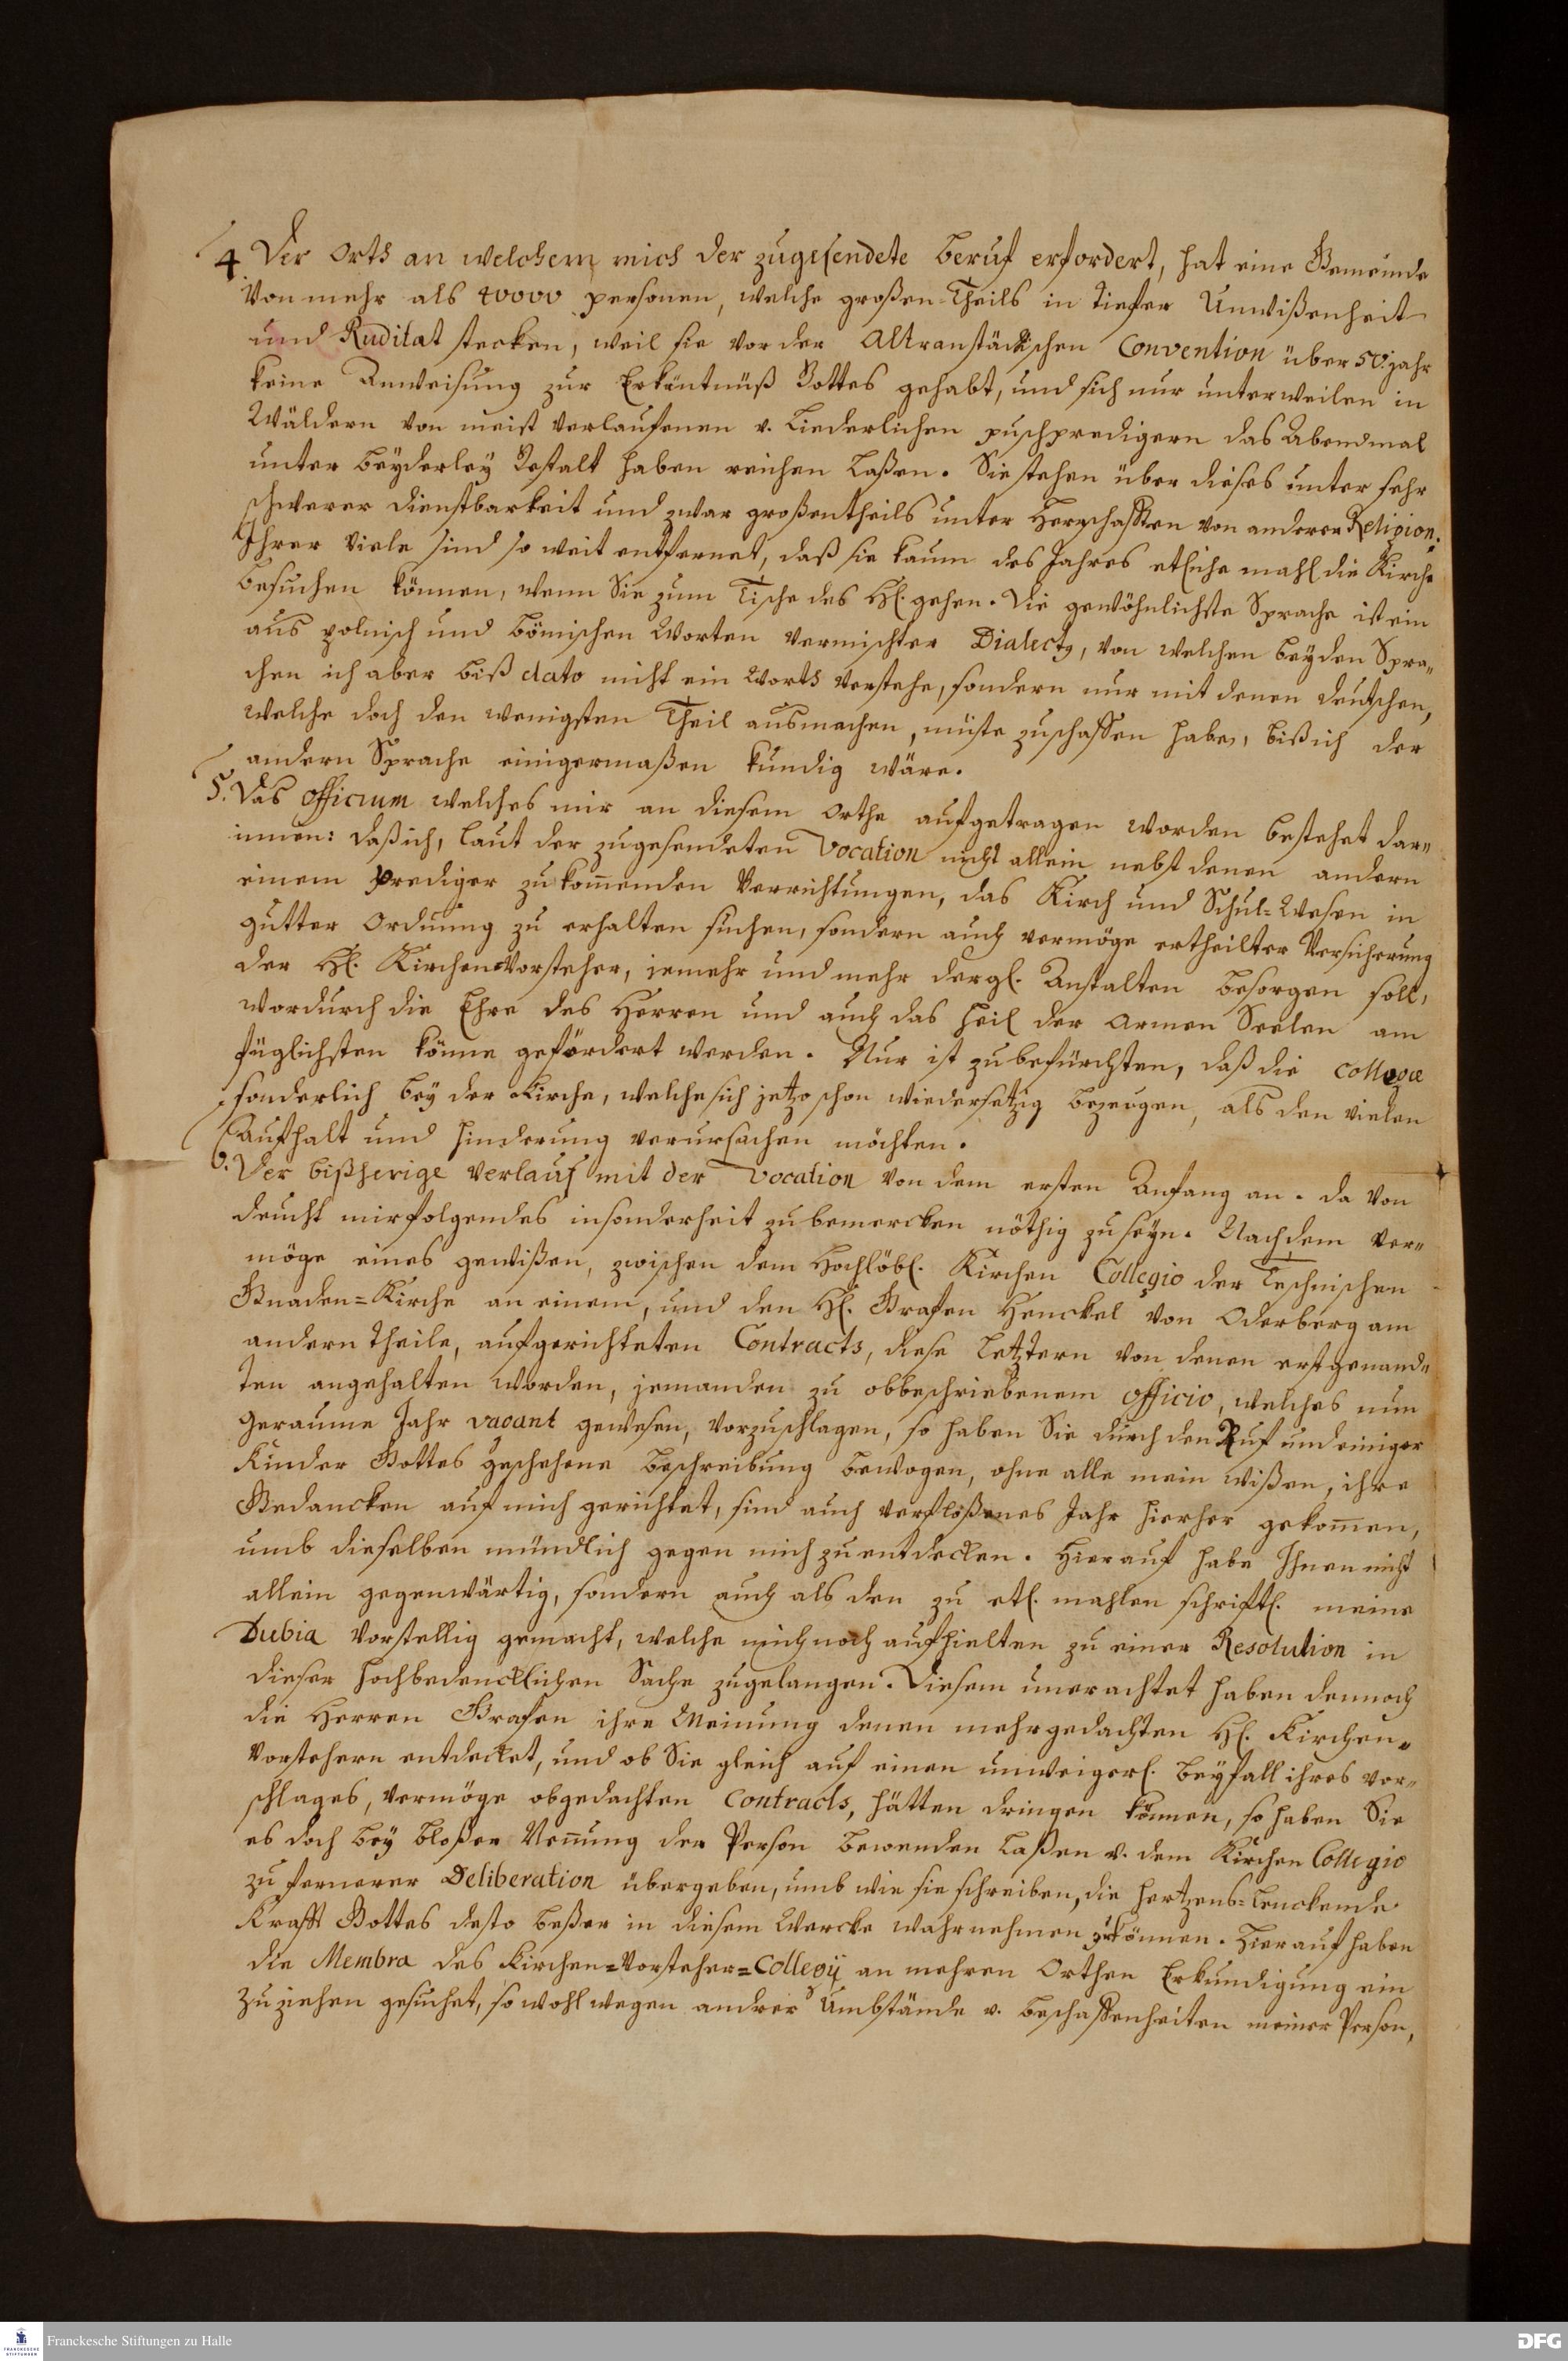 4. Der Orth an welchem mich der zugesendete Beruf erfordert, hat eine Gemeinde
von mehr als 40000 personen, welche großen-Theils in tiefer Unwißenheit
und Ruditat stecken, weil sie vor der Altranstädtischen Convention über 50. jahr
keine Anweisung zur Erkäntnüß Gottes gehabt, und sich nur unterweilen in
Wäldern von meist verlaufenen v. Liederlichen puschpredigern das Abendmal
unter beyderley Gestalt haben reichen laßen. Sie stehen über dieses unter sehr
schwerer Dienstbarkeit und zwar großentheils unter Herrschafften von anderer Religion.
Ihrer viele sind so weit entfernet, daß sie kaum des Jahres etliche mahl die Kirche
besuchen können, wenn Sie zum Tische des H. gehen. Die gewöhnlichste Sprache ist ein
aus polnisch und bömischen Worten vermischter Dialectg, von welchen beyden Spra„
chen ich aber biß dato nicht ein Worth verstehe, sondern nur mit denen deutschen,
welche doch den wenigsten Theil ausmachen, müste zuschaffen haben, biß ich der
andern Sprache einigermaßen kundig wäre.
5. Das Officium welches mir an diesem Orthe aufgetragen worden bestehet dar„
innen: daß ich, laut der zugesendeten Vocation nicht allein nebst denen andern
einem Prediger zukom̅enden Verrichtungen, das Kirch und Schul-Wesen in
gutter Ordnung zu erhalten suchen, sondern auch vermöge ertheilter Versicherung
der H. Kirchen-Vorsteher, jemehr und mehr dergl. Anstalten besorgen soll,
wordurch die Ehre des Herren und auch das Heil der armen Seelen am
füglichsten könne gefördert werden. Nur ist zubefürchten, daß die Collegæ
sonderlich bey der Kirche, welche sich jetzo schon wiedersetzig bezeugen, als den vielen
Aufhalt und Hinderung verursachen möchten.
6. Der bißherige Verlauf mit der Vocation von dem ersten Anfang an. Da von
deucht mir folgendes insonderheit zubemercken nöthig zuseyn. Nachdem ver„
möge eines gewißen, zwischen dem Hochlöbl. Kirchen Collegio der Teschnischen
Gnaden=Kirche an einem, und den H. Grafen Henckel von Oderberg am
andern Theile, aufgerichteten Contracts, diese letztern von denen erstgenand„
ten angehalten worden, jemanden zu obbeschriebenem Officio, welches nun
geraume Jahr vacant gewesen, vorzuschlagen, so haben Sie durch den Ruf und einiger
Kinder Gottes geschehene Beschreibung bewogen, ohne alle mein wißen, ihre
Gedancken auf mich gerichtet, sind auch verfloßenes Jahr hierher gekom̅en,
umb dieselben mündlich gegen mich zuentdecken. Hierauf habe Ihnen nicht
allein gegenwärtig, sondern auch als den zu etl. mahlen schriftl. meine
Dubia vorstellig gemacht, welche mich noch aufhielten zu einer Resolution in
dieser hochbedencklichen Sache zugelangen. Diesem unerachtet haben dennoch
die Herren Grafen ihre Meinung denen mehrgedachten H. Kirchen„
Vorstehern entdecket, und ob Sie gleich auf einen unweigerl. Beyfall ihres Vor„
schlages, vermöge obgedachten Contracts, hätten dringen können, so haben Sie
es doch bey bloßer Nen̅ung der Person bewenden laßen v. dem Kirchen Collegio
zu fernerer Deliberation übergeben, umb wie sie schreiben, die hertzens=lenckende
Krafft Gottes desto beßer in diesem Wercke wahrnehmen zu können. Hierauf haben
die Membra des Kirchen=Vorsteher=Collegij an mehren Orthen Erkundigung ein
zuziehen gesuchet, so wohl wegen andrer Umbstände v. Beschaffenheiten meiner Person,
Franckesche Stiftungen zu Halle
FRANCKESCHE STIFTUNGEN
DFG